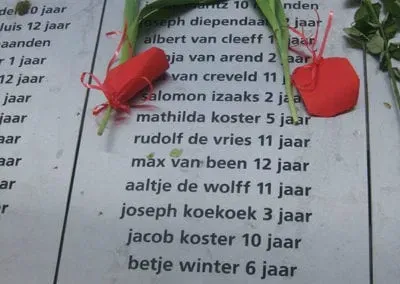 10 jaar
luis 12 jaar
maanden
10 jaar
1 jaar
12 jaar
jaar
jaar
jaar
jaar
aar
ar
moritz 10 jaar
joseph diependaal 2 jaar
albert van cleeff 1 jaar
van arend 2 jaar
van creveld 11 jaar
salomon izaaks 2 jaar
mathilda koster 5 jaar
rudolf de vries 11 jaar
max van been 12 jaar
aaltje de wolff 11 jaar
joseph koekoek 3 jaar
jacob koster 10 jaar
betje winter 6 jaar